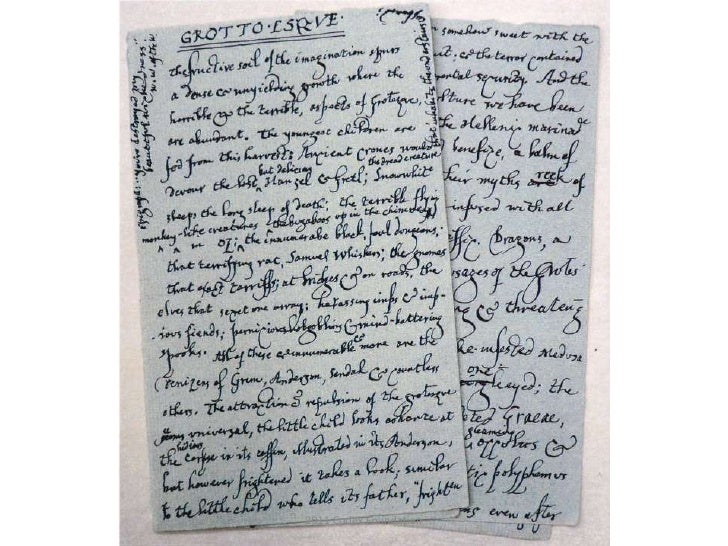 GROTTO·ESQVE·
the fructive soil of the imagination spurs
a dense & unyielding growth where the
horrible & the terrible, aspects of Grotesque,
are abundant. The youngest children are
fed from this harvest; Ancient Crones would
but delicious
the dread creature
devour the lost Hanzel & Gretl; Snowwhit
sleeps the long sleep of death; the terrible flying
monkey-like creatures the bugaboos up in the chimney
in OZ; the innumerable black foul dungeons;
that terrifying rat, Samuel Whiskers; the gnomes
that exact tarriffs at bridges & on roads, the
elves that upset one array; harassing imps & imp-
ious fiends; pernicious hobgoblins & mind-battering
spooks. All of these & innumerable more are the
Denizens of Grimm, Anderson, Sendak & countless
others. The attraction & repulsion of the grotesque
universal, the little child looks askance at
hiding
the corpse in its coffin, illustrated in its Anderson,
but however frightened it takes a look; similar
to the little child who tells its father, "frighten
epigraph: you've destroyed my
beautiful wickedness!
witch of the w
somehow sweet with the
& the terror contained
And the
we have been
the Hellenic marina
benefize, a balm of
their myths reek of
infused with all
Dragons, a
of the Grotes
& threateng
-infested Medusa
one
eyed; the
Graeae,
gleaming
&
polyphemus
even after